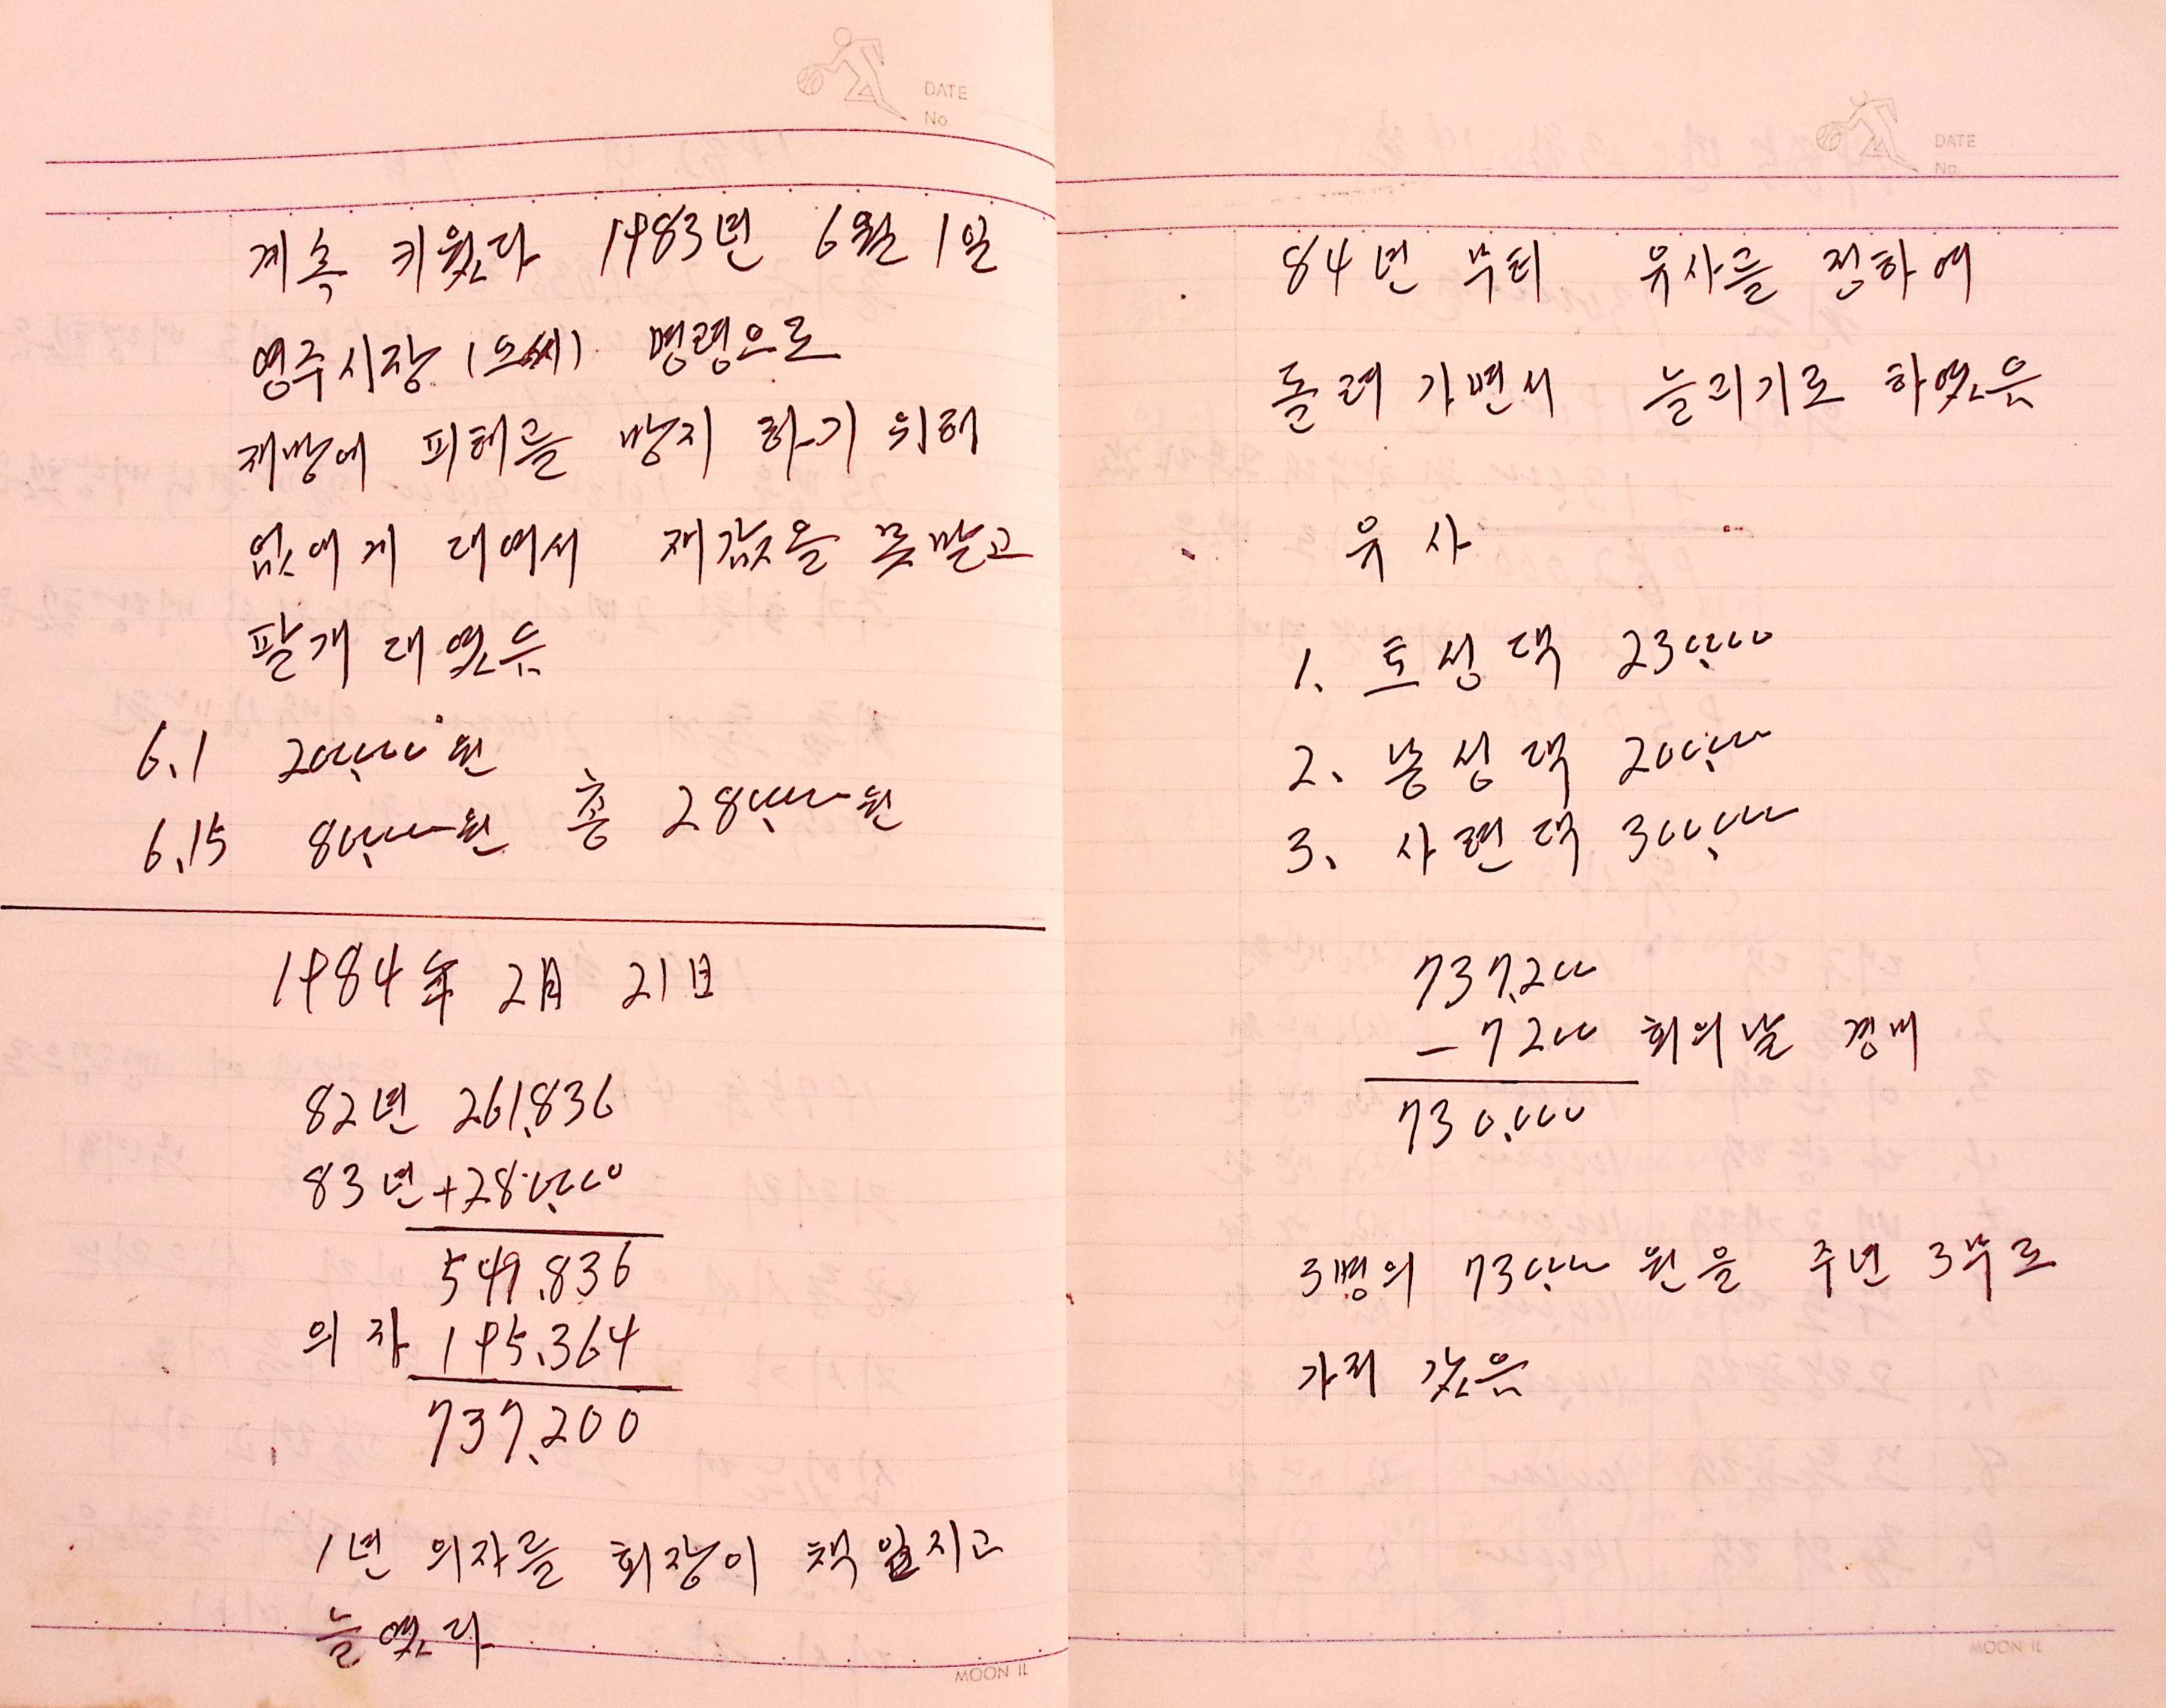 DATE
No
계속 키웠다 1983년 6월 1일
영주시장 (오씨) 명령으로
재방에 피해를 방지 하기 위해
없에게 대여서 재값을 못받고
팔개 대였슴
6.1 200,000원
6.15 80,000원 총 280,000원
1984年 2月 21日
82년 261,836
83년 +280,000
549,836
의자 195,364
737,200
1년 의자를 회장이 책임지고
늘였다
MOON IL
DATE
No
84년 부터 유사를 정하여
돌려 가면서 늘리기로 하였음
유사
1. 토성댁 230,000
2. 농성댁 200,000
3. 사련댁 300,000
737,200
- 7200 회의날 경비
730,000
3명의 730,000원을 주년 3부로
가저 갔음
MOON IL